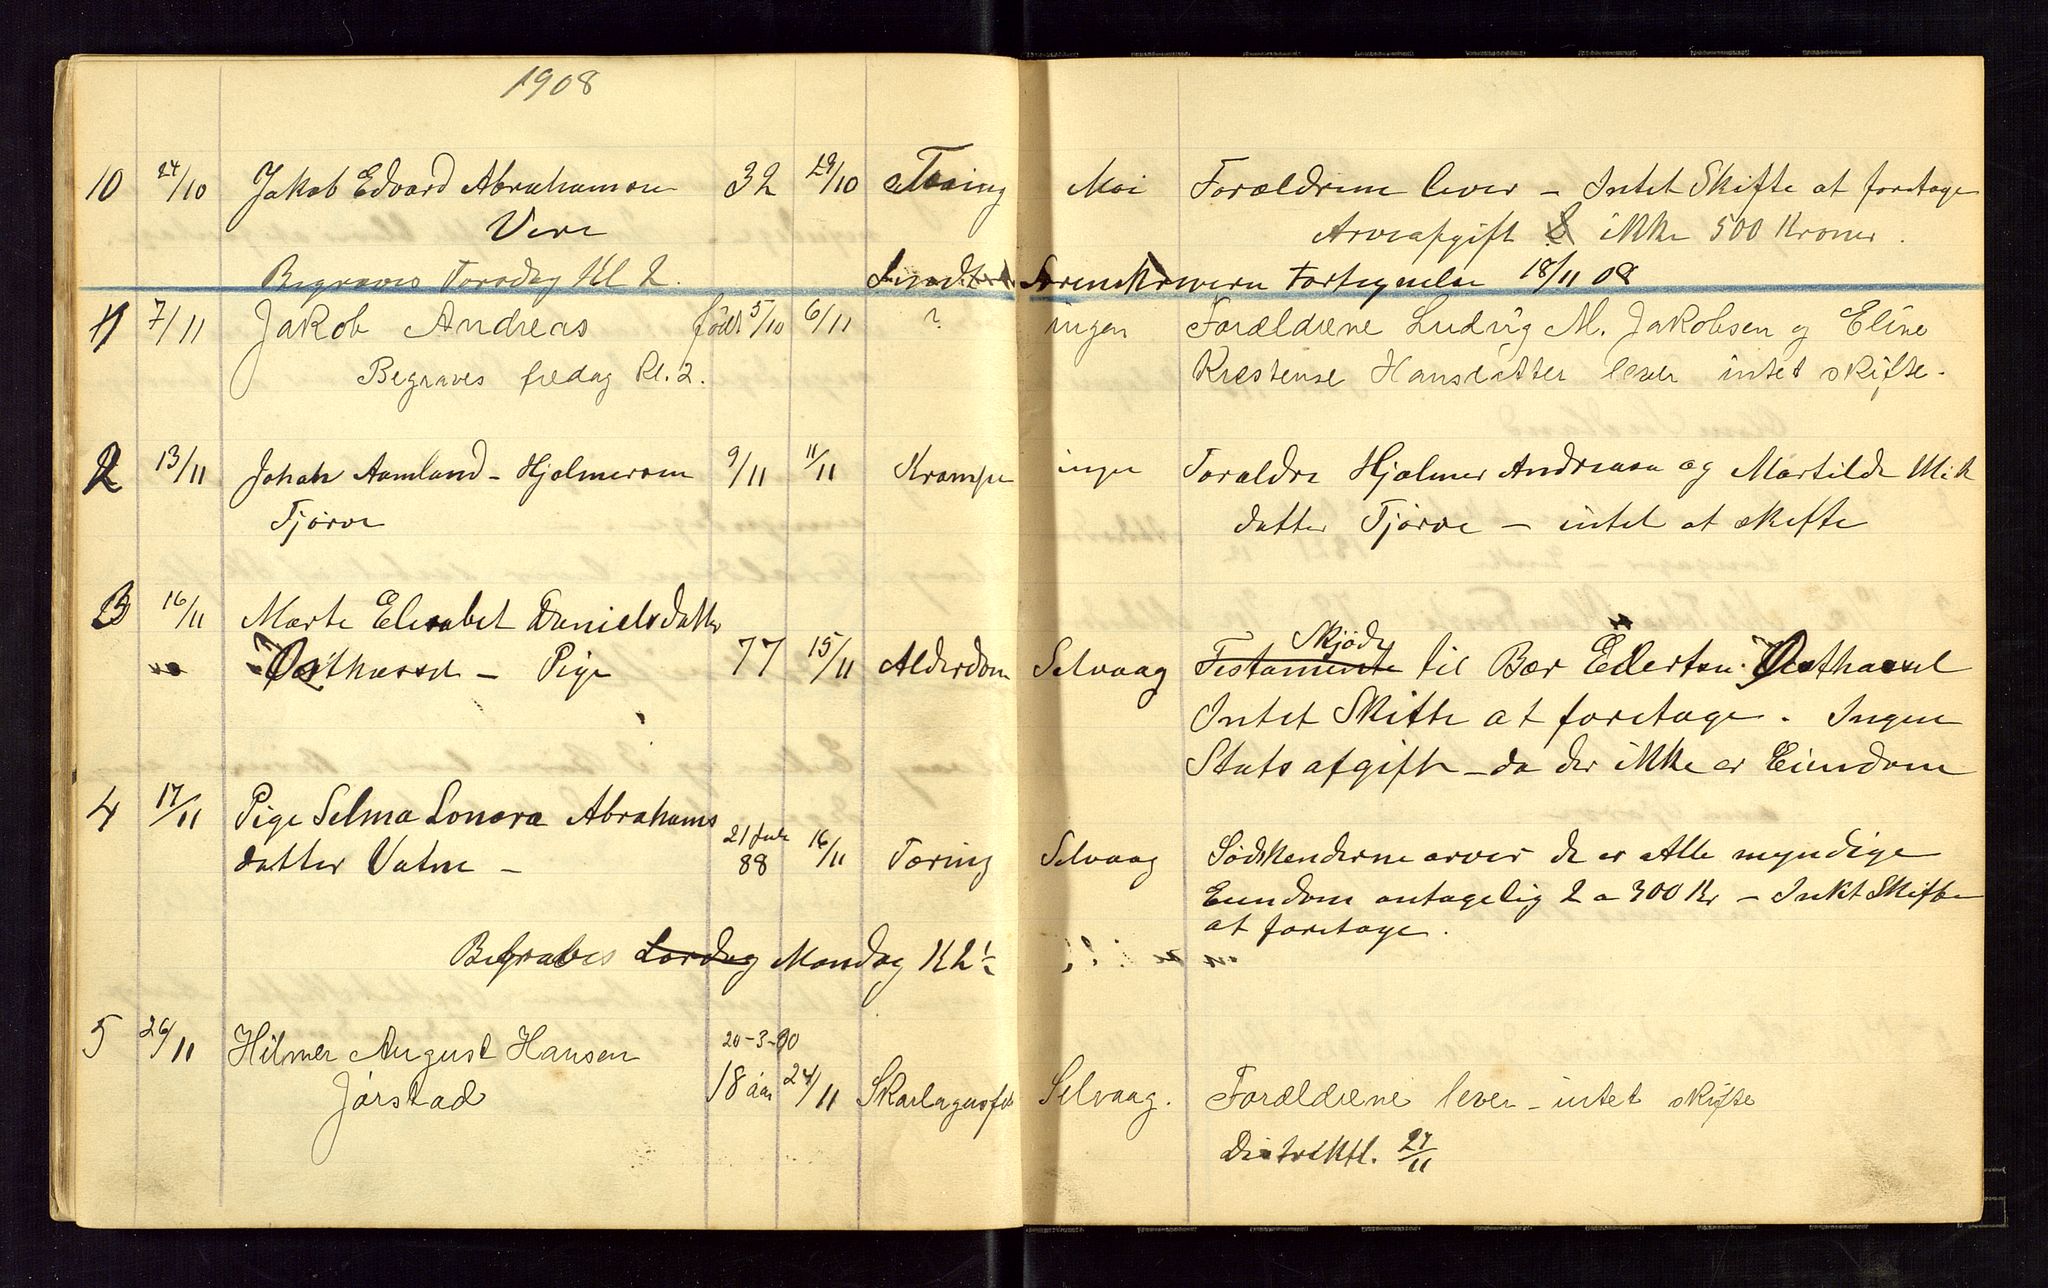 1908
10 24/10 Jakob Edvard Abrahamsen 32 29/10 Tæring Moi Forældrene lever – Intet Skifte at foretage
Vere Arveafgift ikke 500 Kroner.
Begraves Torsdag Kl 2. Sendt Sorenskriveren Fortegnelse 18/11 08
11 7/11 Jakob Andreas født 5/10 6/11 ? ingen Forældrene Ludvig M. Jakobsen og Eline
Begraves fredag kl. 2. Kristense Hansdatter lever intet skifte.
2 13/11 Johan Aamland – Hjalmersen 9/11 11/11 Krampe ingen Foraldre Hjalmer Andreasen og Martilde Mik
Tjørve datter Tjørve – intet at skifte
3 16/11 Marte Elisabet Danielsdatter
Skjøde
Østhassel – Pige 77 15/11 Alderdom Selvaag Testamente til Bær Eilertsen Østhassel
Intet Skifte at foretage. Ingen
Statsafgift – da der ikke er Eiendom
4 17/11 Pige Selma Lonora Abrahams
datter Vatne – 21 Juli 88 16/11 Tæring Selvaag Sødskenderne arver de er Alle myndige
Eiendom antagelig 2 a 300 Kr – Intet Skifte
at foretage.
Begraves Lørdag Mandag Kl 1
5 26/11 Hilmer August Hansen 20-3-90
Jørstad 18 aar 24/11 Skarlagensfeb Selvaag. Forældrene lever – intet skifte
Distriktl. 27/11